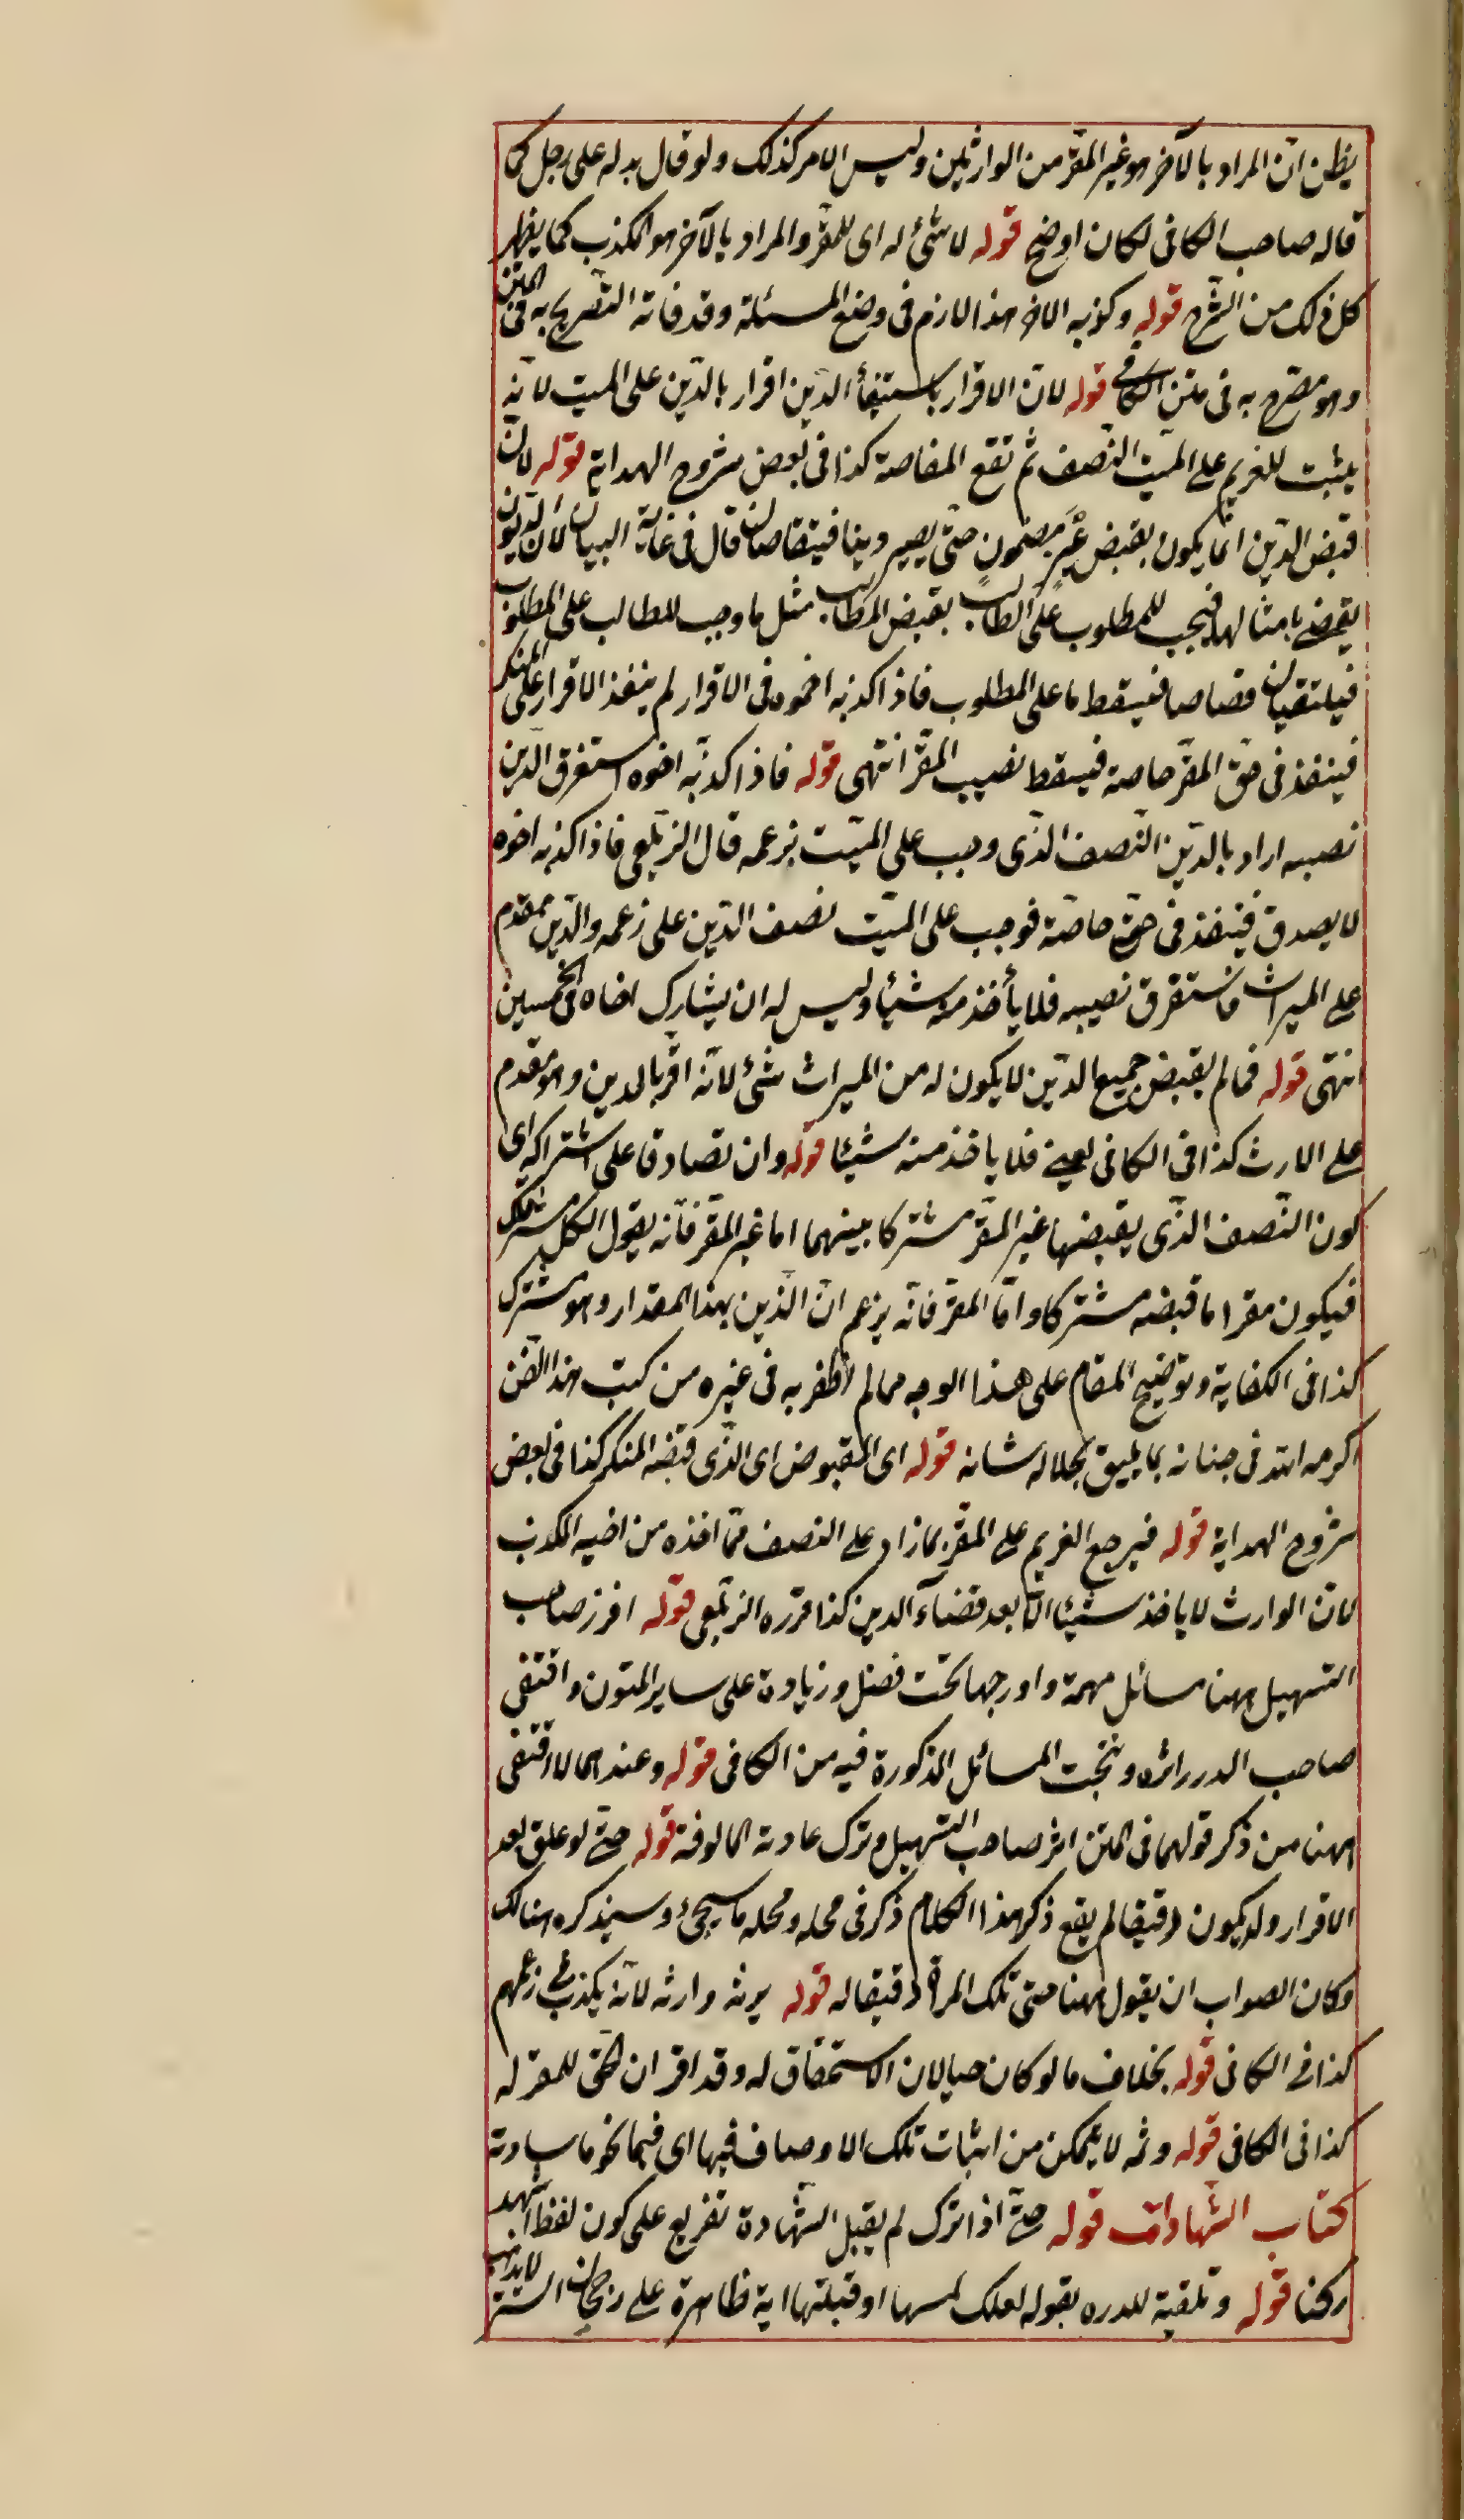 يظن ان المراد بالآخر هو غير المقر من الوارثين وليس الامر كذلك ولو قال بدله على رجل كما
قاله صاحب الكافى لكان اوضح قوله لا شئ له اى للمقر والمراد بالآخر هو المكذب كما يظهر
كل ذلك من الشرح قوله وكذبه الآخر هذا لازم فى وضع المسئلة وقد فاته التصريح به فى المتن
وهو مصرح به فى متن الكافى قوله لان الاقرار باستيفأ الدين اقرار بالدين على الميت لانه
يثبت للغريم على الميت النصف ثم تقع المقاصة كذا فى بعض شروح الهداية قوله لان
قبض الدين انما يكون بقبض عين مضمون حتى يصير دينا فيتقاصان قال فى غاية البيان لان الديون
تقضى بامثالها فيجب للمطلوب على الطالب بقبض الطالب مثل ما وجب للطالب على المطلوب
فيلتقيان قصاصا فيسقط ما على المطلوب فاذا اكذبه اخوه فى الاقرار لم ينفذ الاقرار على المنكر
فينفذ فى حق المقر خاصة فيسقط نصيب المقر انتهى قوله فاذا كذبه اخوه استغرق الدين
نصيبه اراد بالدين النصف الذى وجب على الميت بزعمه قال الزيلعى فاذا كذبه اخوه
لا يصدق فينفذ فى حقه خاصة فوجب على الميت نصف الدين على زعمه والدين مقدم
على الميراث فاستغرق نصيبه فلا يأخذ منه شيئا وليس له ان يشارك اخاه فى الخمسين
انتهى قوله فما لم يقبض جميع الدين لا يكون له من الميراث شئ لانه اقر بالدين وهو مقدم
على الارث كذا فى الكافى يعنى فلا ياخذ منه شيئا قوله وان تصادقا على اشتراكه اى
كون النصف الذى يقبضها غير المقر مشتركا بينهما اما غير المقر فانه يقول الكل مشترك
فيكون مقرا ما قبضه مشتركا واما المقر فانه يزعم ان الدين بهذا المقدار وهو مشترك
كذا فى الكفاية وتوضيح المقام على هذا الوجه مما لم اظفر به فى غيره من كتب هذا الفن
اكرمه الله فى جنانه بما يليق بجلاله شانه قوله اى المقبوض اى الذى قبضه المنكر كذا فى بعض
شروح الهداية قوله فيرجع الغريم على المقر بما زاد على النصف مما اخذه من اخيه المكذب
لان الوارث لا ياخذ شيئا الا بعد قضاء الدين كذا قرره الزيلعى قوله افرز صاحب
التسهيل ههنا مسائل مهمة واورجها تحت فصل وزيادة على ساير المتون واقتفى
صاحب الدرر اثره وتحت المسائل المذكورة فيه من الكافى قوله وعندهما لا اقتفى
ههنا من ذكر قولهما فى المتن اثر صاحب التسهيل وترك عادته المالوفة قوله حتى لو علق بعد
الاقرار ولد يكون رقيقا لم يقع ذكر هذا الكلام ذكر فى محله ومحله ما سيجئ وسيذكره هنالك
وكان الصواب ان يقول ههنا حتى تلك المرأة رقيقا له قوله يرثه وارثه لانه يكذب فى زعمهم
كذا فى الكافى قوله بخلاف ما لو كان حيا لان الاستحقاق له وقد اقر ان الحق للمقر له
كذا فى الكافى قوله وثمه لا يتمكن من اثبات تلك الاوصاف فيها اى فيما نحو ما سبا دته
كتاب الشهادات قوله حتى اذا ترك لم يقبل الشهادة تفريع على كون لفظ اشهد
ركنا قوله وتلقينه للدرء بقوله لعلك لمسها او قبلتها اية ظاهرة على رجحان الستر لا يذهب